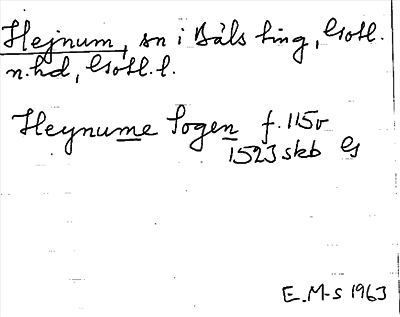 Hejnum, sn i Bäls ting, Gotl.
n.hd, Gotl. l.
Heynume Sogen f. 115v
1523 skb Gs
E. M-s 1963